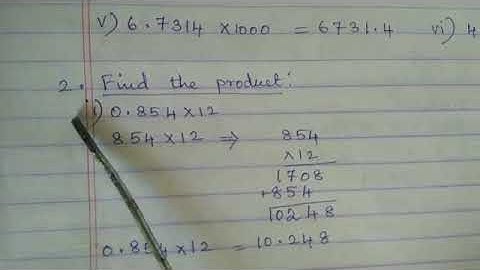 v) 6.7314 x1000 = 6731.4 vi) 4
2. Find the product:
i) 0.854 x 12
854 x 12 ⇒ 854
x12
1708
+854
10248
0.854 x 12 = 10.248